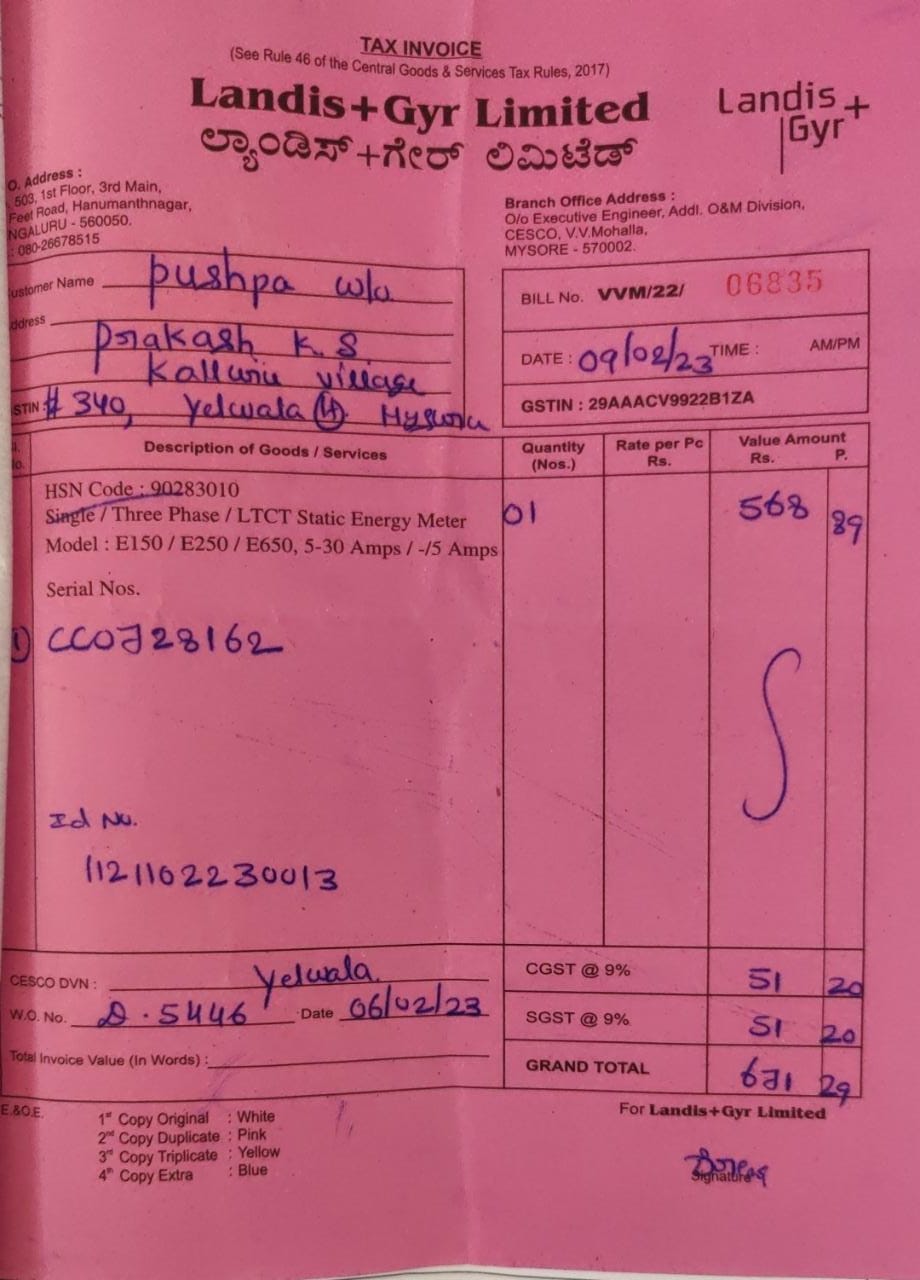 TAX INVOICE
(See Rule 46 of the Central Goods & Services Tax Rules, 2017)
Landis+Gyr Limited
ಲ್ಯಾಂಡಿಸ್+ಗೇರ್ ಲಿಮಿಟೆಡ್
Landis
Gyr+
O. Address :
503, 1st Floor, 3rd Main,
Feet Road, Hanumanthnagar,
NGALURU - 560050.
: 080-26678515
Branch Office Address :
O/o Executive Engineer, Addl. O&M Division,
CESCO, V.V.Mohalla,
MYSORE - 570002.
ustomer Name pushpa w/o
ddress
prakash K.S.
village
STIN : # 340, Yelwala (H)
BILL No. VVM/22/ 06835
DATE : 09/02/23 TIME : AM/PM
GSTIN : 29AAACV9922B1ZA
Description of Goods / Services Quantity (Nos.) Rate per Pc Rs. Value Amount Rs. P.
HSN Code : 90283010
Single / Three Phase / LTCT Static Energy Meter 01 568 89
Model : E150 / E250 / E650, 5-30 Amps / -/5 Amps
Serial Nos.
1) CC0J28162
Id No.
1121102230013
CESCO DVN : Yelwala
CGST @ 9% 51 20
W.O. No. D.5446 Date 06/02/23
SGST @ 9% 51 20
Total Invoice Value (In Words) :
GRAND TOTAL 671 29
E.&O.E.
1st Copy Original : White
2nd Copy Duplicate : Pink
3rd Copy Triplicate : Yellow
4th Copy Extra : Blue
For Landis+Gyr Limited
Signature